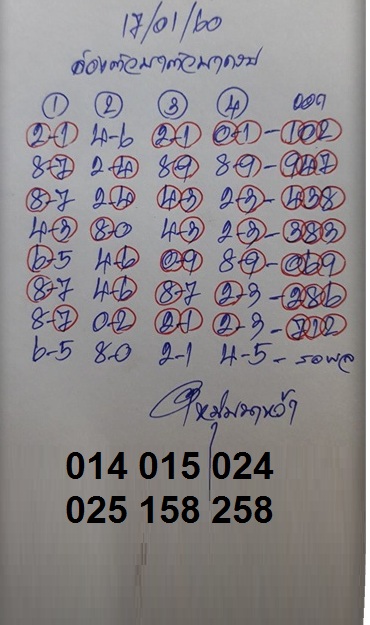 17/01/60
สองตัวมาตัวมาตรง
1 2 3 4 ออก
2-1 4-6 2-1 0-1 - 102
8-7 2-4 8-9 8-9 - 947
8-7 2-4 4-3 2-3 - 438
4-3 8-0 4-3 2-3 - 383
6-5 4-6 0-9 8-9 - 069
8-7 4-6 8-7 2-3 - 286
8-7 0-2 2-1 2-3 - 712
6-5 8-0 2-1 4-5 - รอผล
014 015 024
025 158 258